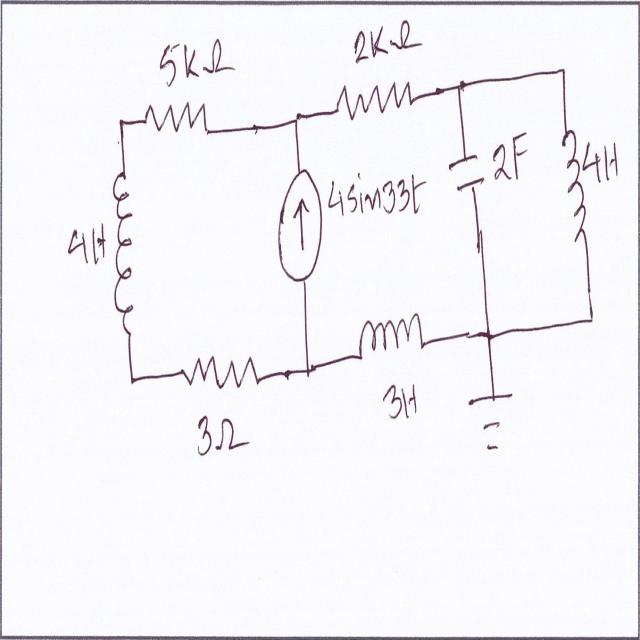 5KΩ
2KΩ
4H
4sin33t
2F
4H
3Ω
3H